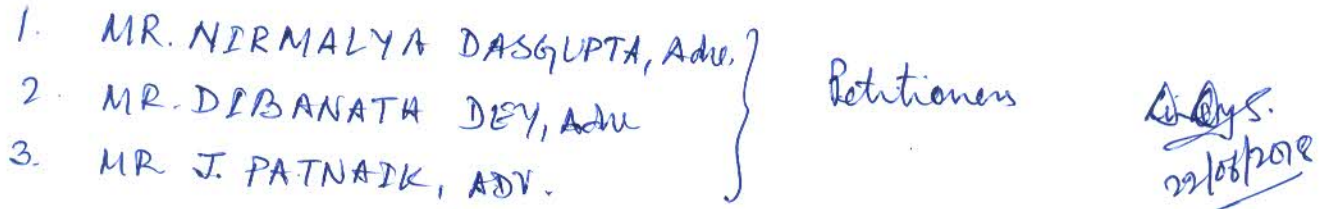 1. MR. NIRMALYA DASGUPTA, Adv.
2. MR. DIBANATH DEY, Adv
3. MR J. PATNAIK, ADV.
Petitioners
22/06/2018